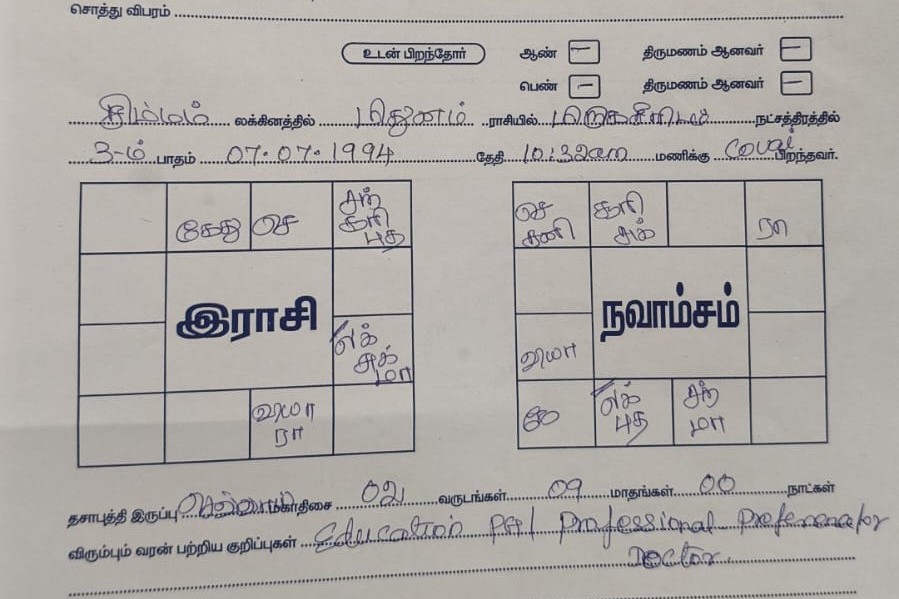 சொத்து விபரம்
உடன் பிறந்தோர் ஆண் – திருமணம் ஆனவர் –
பெண் – திருமணம் ஆனவர் –
சிம்மம் லக்கினத்தில் மிதுனம் ராசியில் மிருகசீரிடம் நட்சத்திரத்தில்
3-ம் பாதம் 07.07.1994 தேதி 10:32am மணிக்கு Covai பிறந்தவர்.
கேது செ சந் சூரி புத
இராசி
லக் சுக் மா
வியா ரா
செ சனி சூரி சுக் ரா
நவாம்சம்
வியா
கே லக் புத சந் மா
தசாபுத்தி இருப்பு செவ்வாய் மகாதிசை 02 வருடங்கள் 09 மாதங்கள் 00 நாட்கள்
விரும்பும் வரன் பற்றிய குறிப்புகள் Education Professional
Doctor